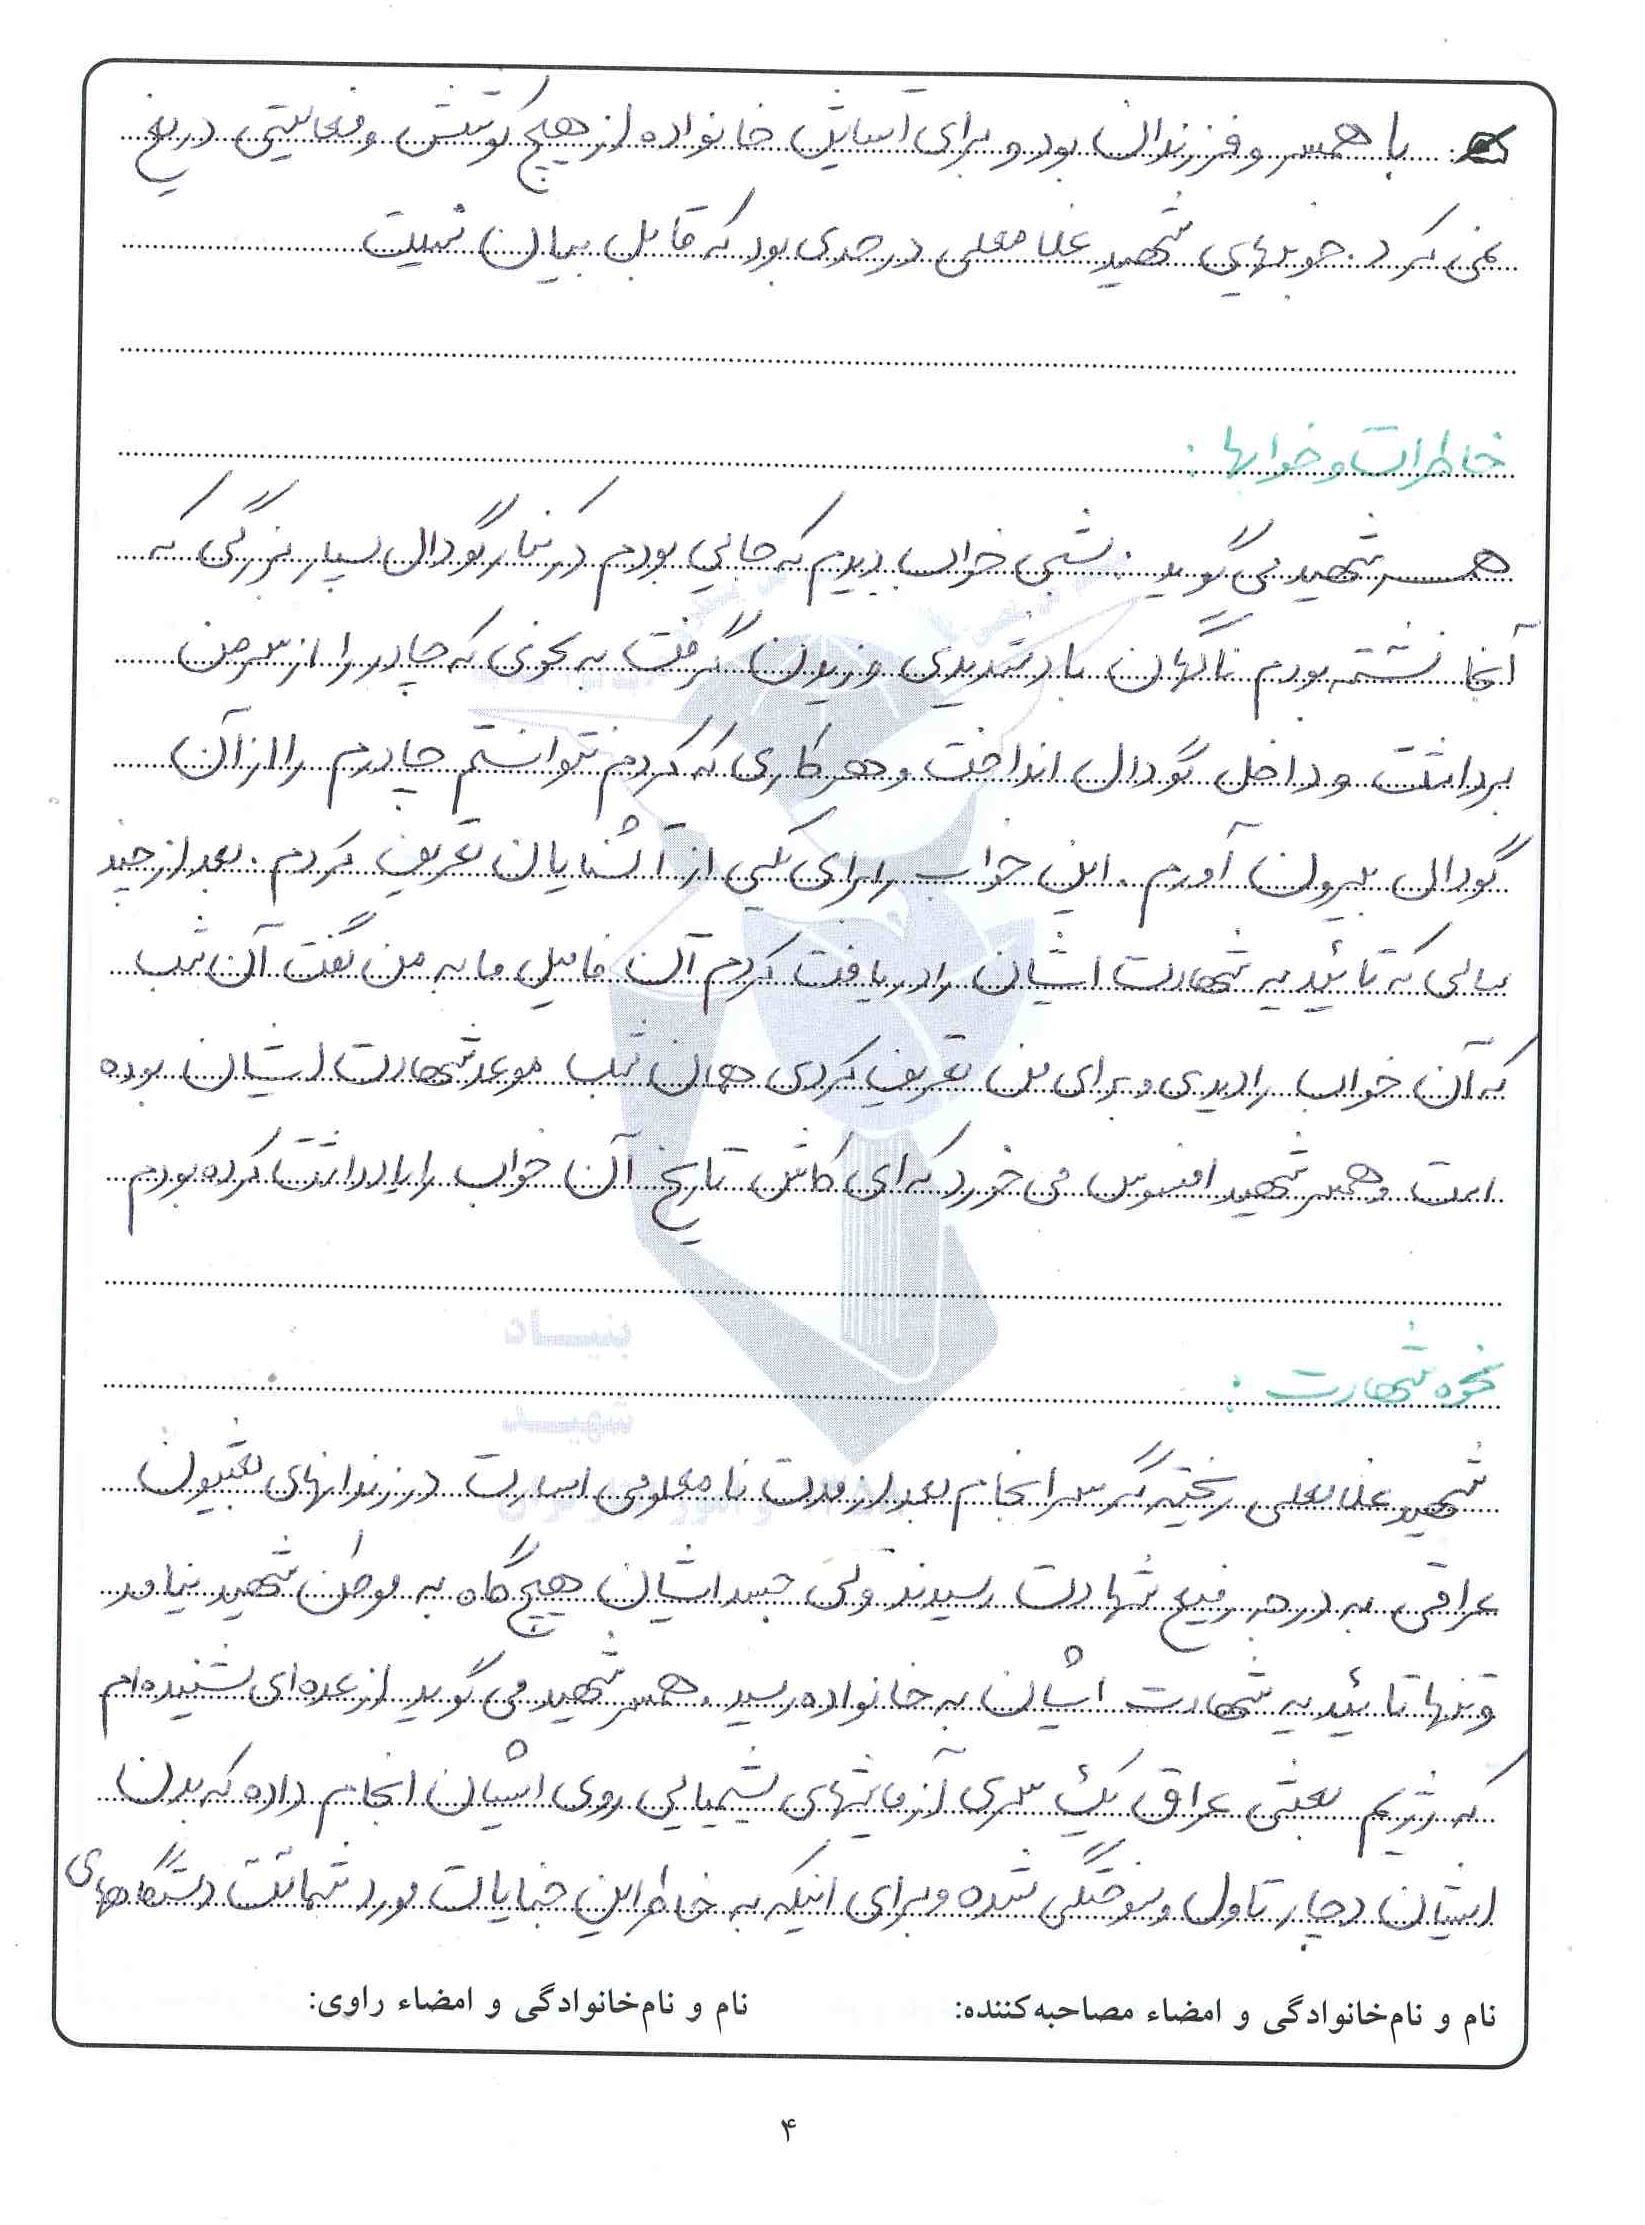 با همسر و فرزندان بود و برای آسایش خانواده از هیچ کوشش و فعالیتی دریغ
نمی کرد. خوبیهای شهید غلامعلی در حدی بود که قابل بیان نیست
خاطرات و خوابها :
همسر شهید می گوید : شبی خواب دیدم که جایی بودم در کنار گودال بسیار بزرگی که
آنجا نشسته بودم ناگهان باد شدیدی وزیدن گرفت به نحوی که چادر را از سر من
برداشت و داخل گودال انداخت و هر کاری که کردم نتوانستم چادرم را از آن
گودال بیرون آورم. این خواب را برای یکی از آشنایان تعریف کردم. بعد از چند
سالی که تائیدیه شهادت ایشان را دریافت کردم آن فامیل ما به من گفت آن شب
که آن خواب را دیدی و برای من تعریف کردی همان شب موعد شهادت ایشان بوده
است و همسر شهید افسوس می خورد که ای کاش تاریخ آن خواب را یادداشت کرده بودم
بنیاد
شهید
نحوه شهادت :
شهید غلامعلی ریخته گر سرانجام بعد از مدت نامعلومی اسارت در زندانهای بعثیون
عراقی به درجه رفیع شهادت رسیدند ولی جسد ایشان هیچ گاه به موطن شهید نیامد
و تنها تائیدیه شهادت ایشان به خانواده رسید. همسر شهید می گوید از عده ای شنیده ام
که رژیم بعثی عراق یک سری آزمایشهای شیمیایی روی ایشان انجام داده که بدن
ایشان دچار تاول و سوختگی شده و برای اینکه به خاطر این جنایات مورد شماتت دستگاههای
نام و نام‌خانوادگی و امضاء مصاحبه‌کننده: نام و نام‌خانوادگی و امضاء راوی:
۴